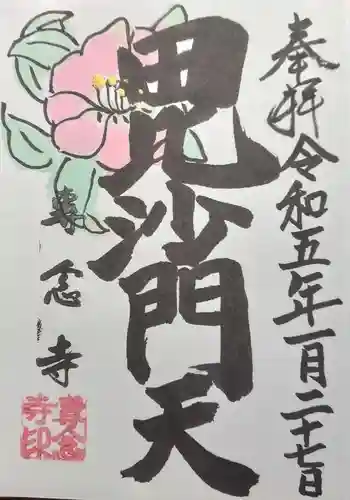 奉拝令和五年一月二十七日
毘沙門天
専念寺
専念寺印